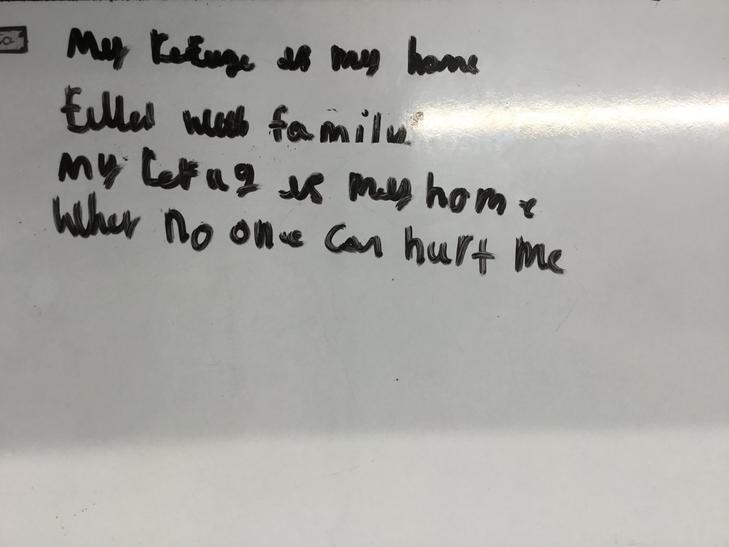 My Refuge is my home
filled with family
My Refug is my home
Wher no one can hurt me